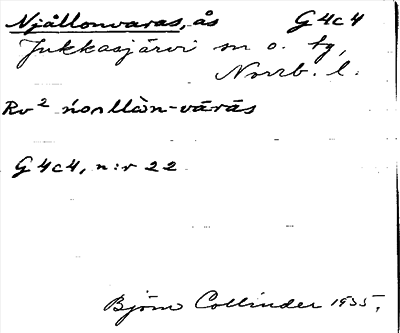 Njållonvaras, ås G4c4
Jukkasjärvi sn o. tg,
Norrb. l.
Rv² ńoʌllån-vārās
G4c4, n:r 22
Björn Collinder 1935.